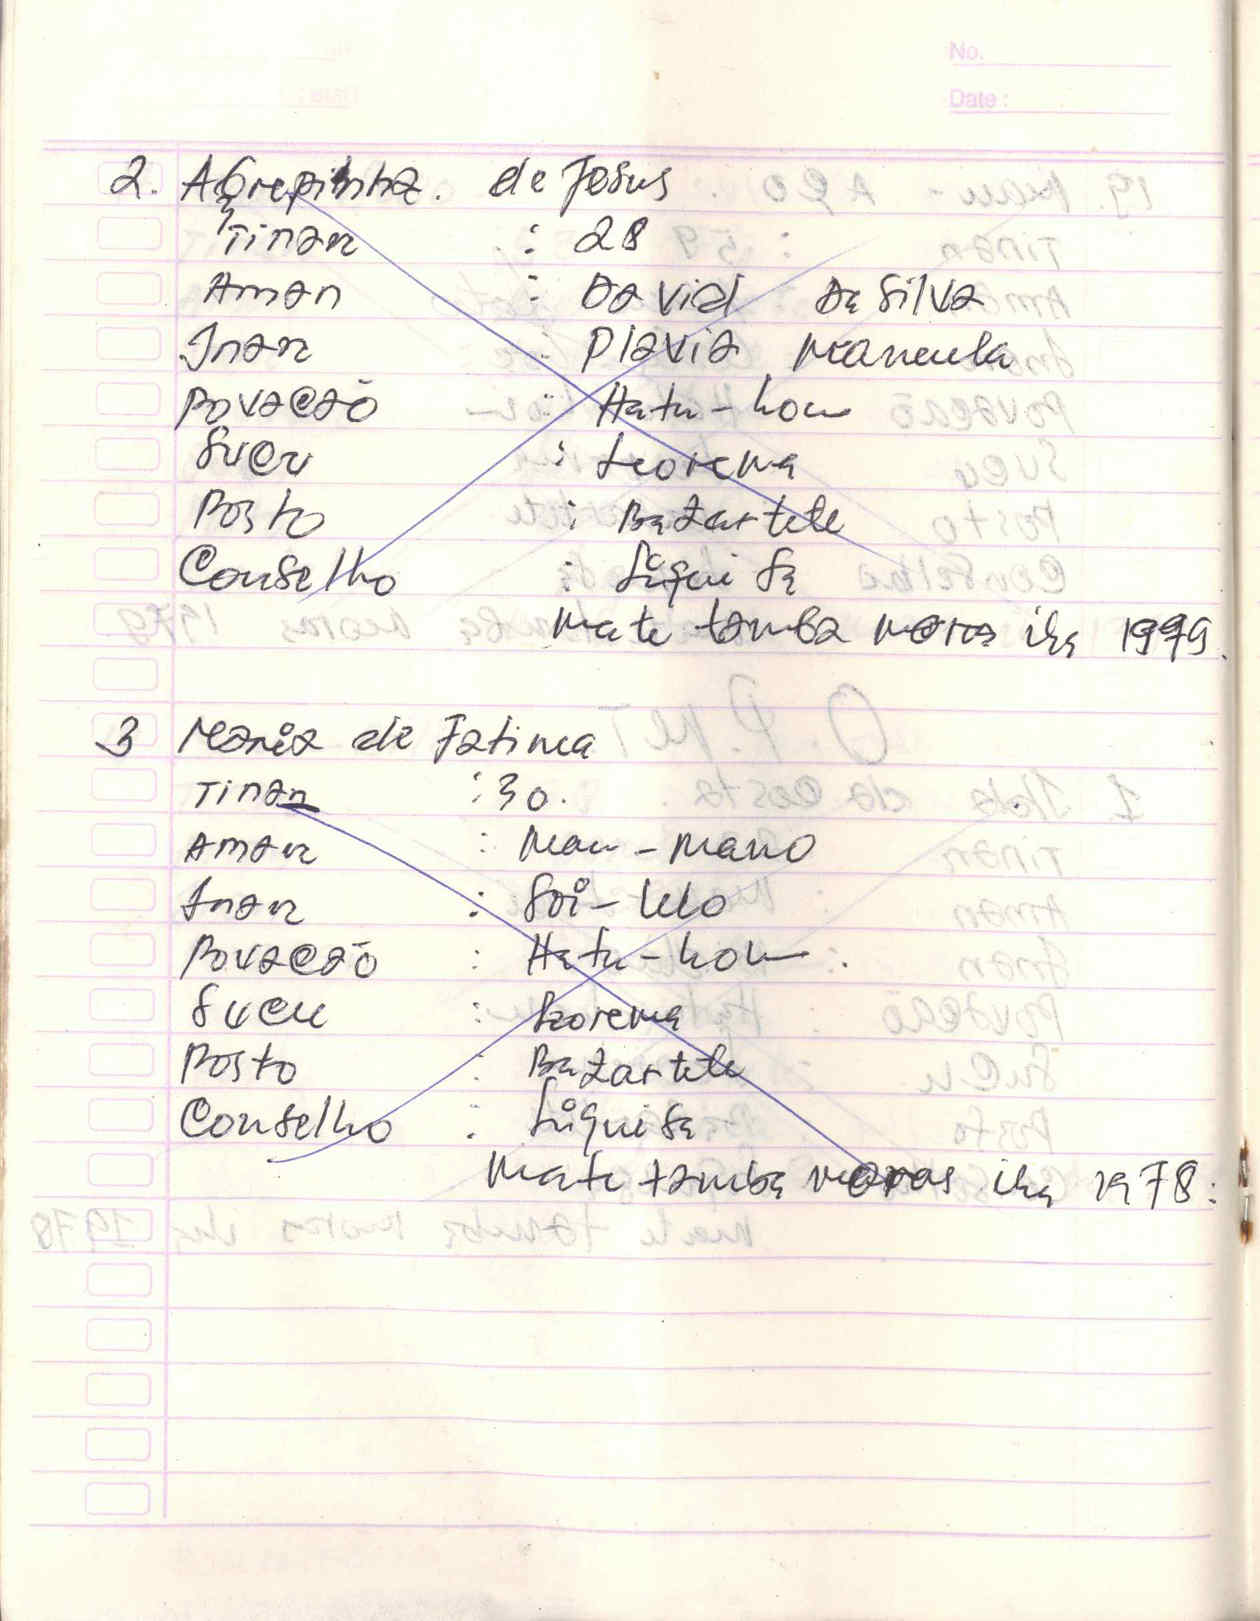 No.
Date :
2. Agrepinha. de Jesus
Tinan : 28
Aman : David da Silva
Inan : Plavia Manuela
Povacaõ : Hatu-hou
Sucu : Leorema
Posto : Bazartete
Conselho : Liquisa
Mate tamba moras iha 1999.
3 Maria de Fatima
Tinan : 30.
Aman : Mau-Mano
Inan : Soi-lelo
Povacaõ : Hatu-hou.
Sucu : Leorema
Posto : Bazartete
Conselho : Liquisa
Mate tamba moras iha 1978: